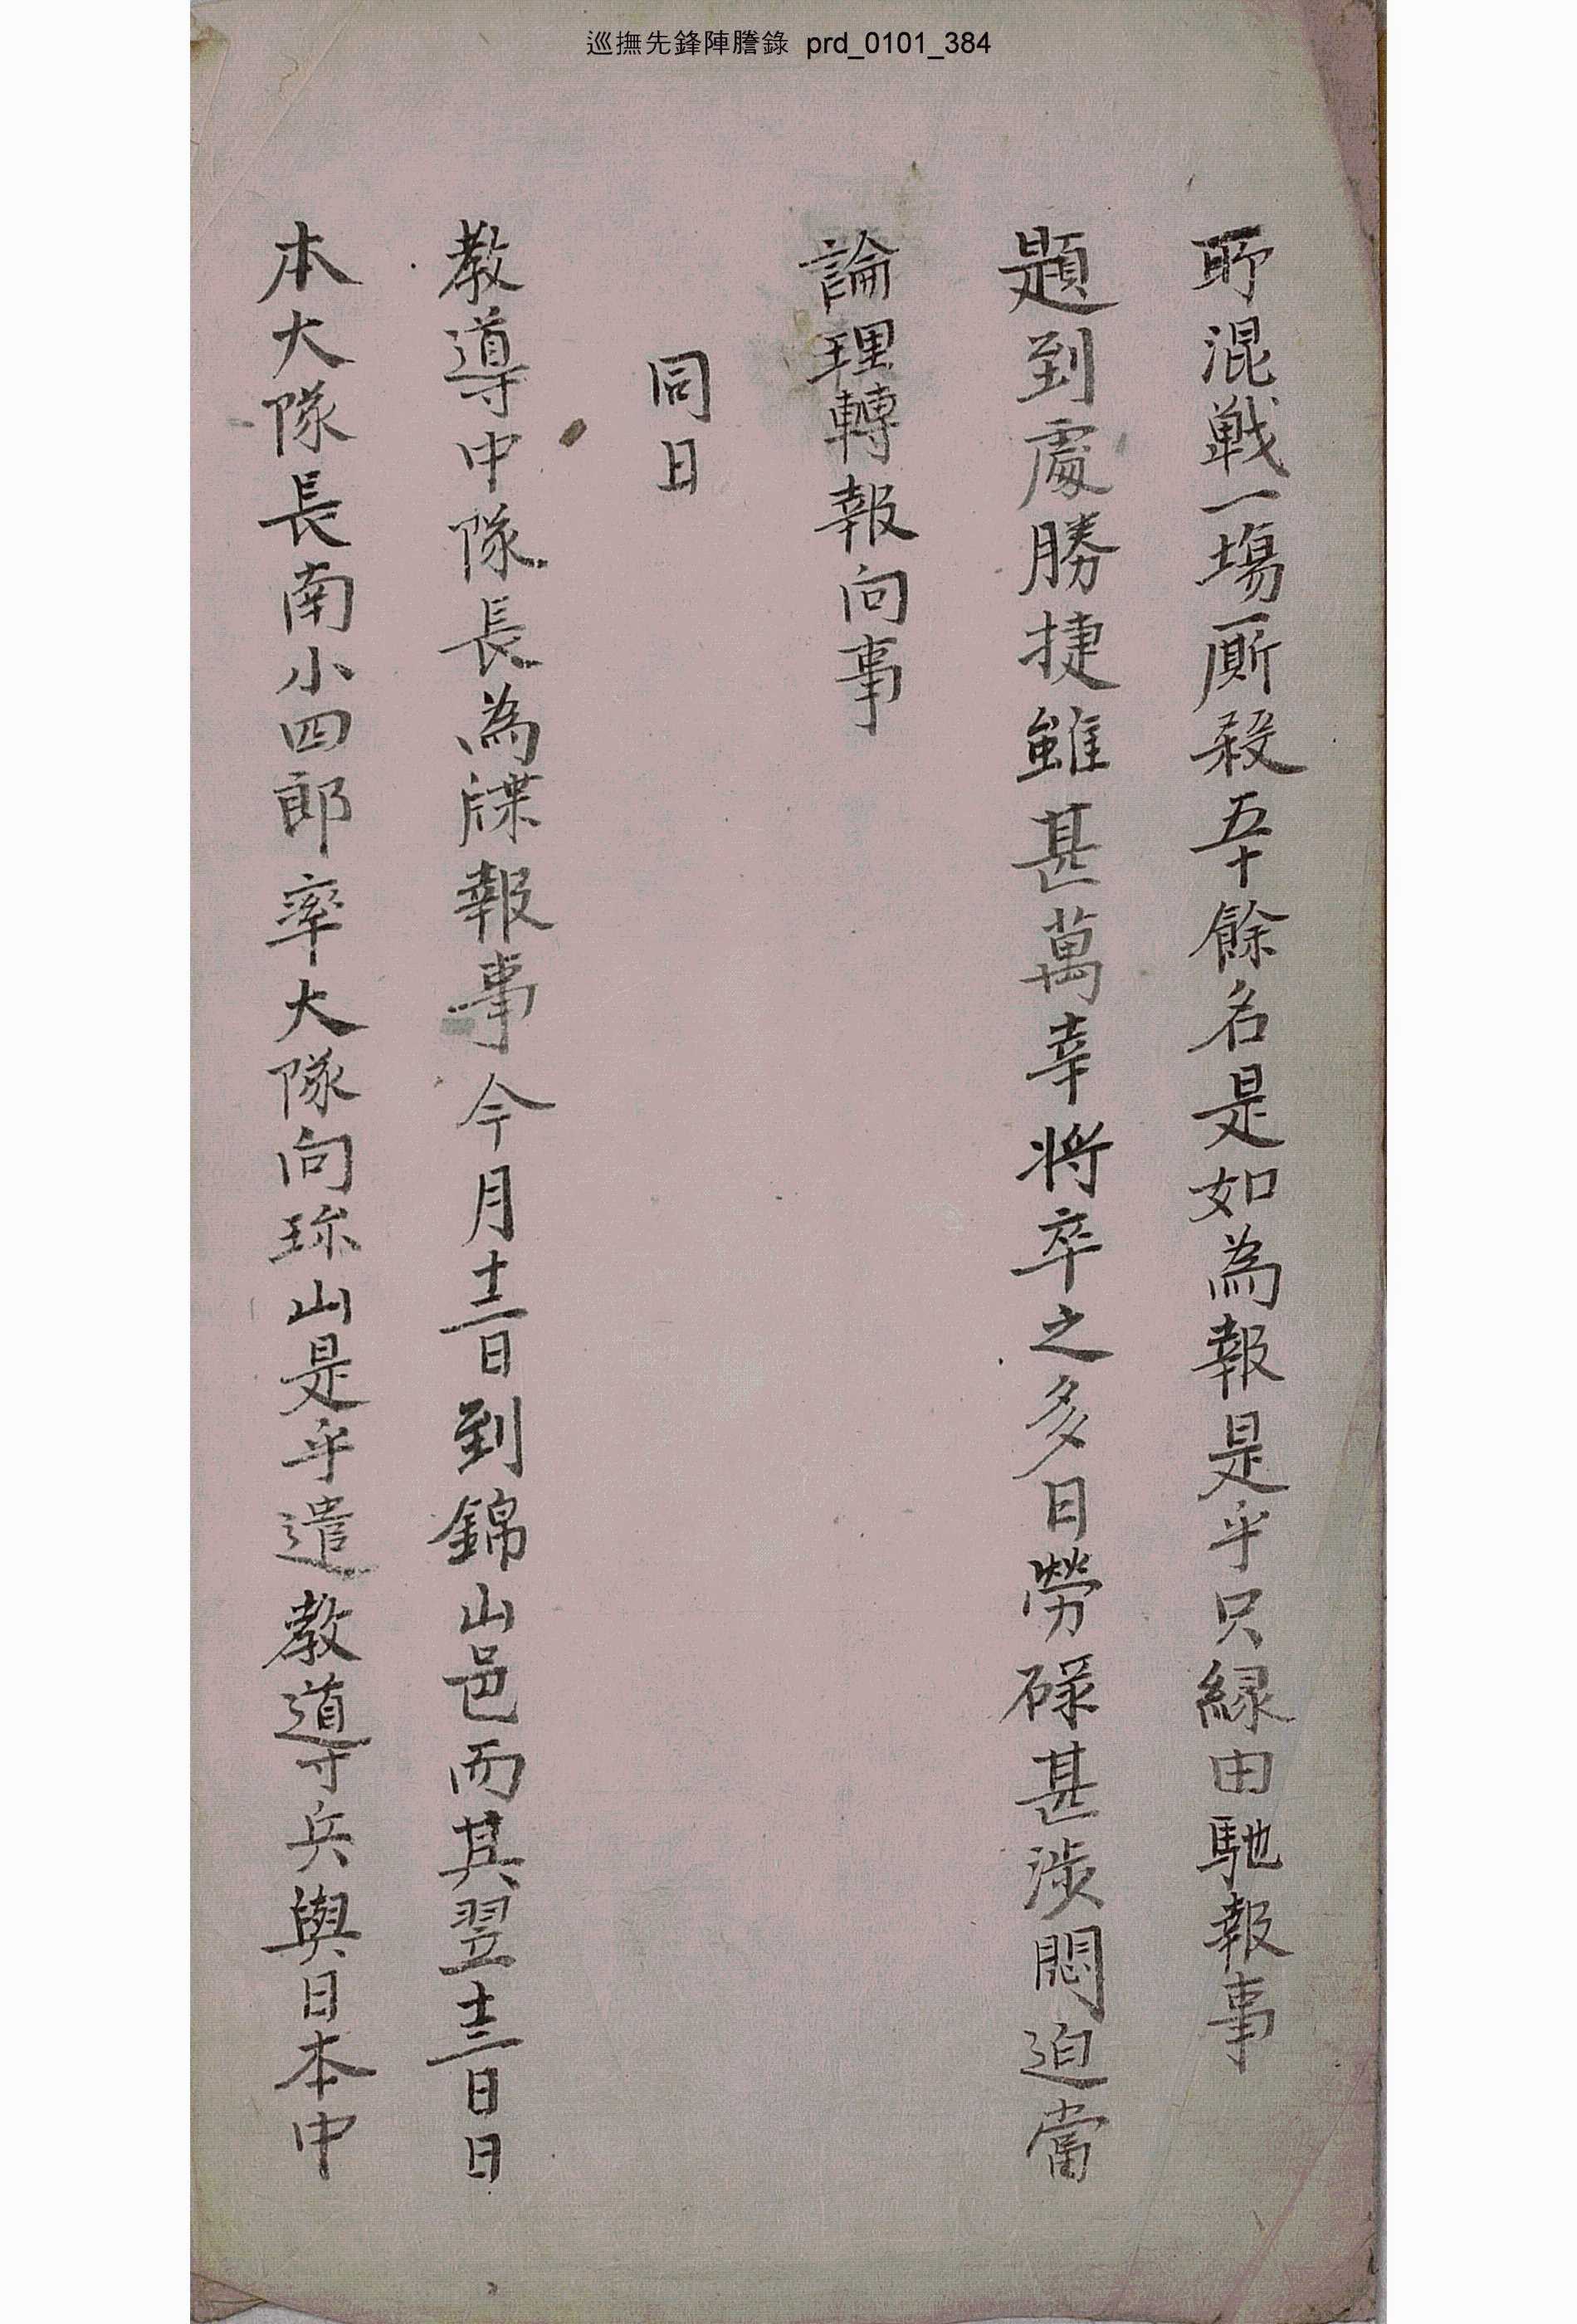 巡撫先鋒陣謄錄 prd_0101_384
所混戰一場厮殺五十餘名是如為報是乎只緣由馳報事
題到處勝捷雖甚萬幸將卒之多日勞碌甚涉悶迫當
論理轉報向事
同日
教導中隊長為牒報事今月十二日到錦山邑而其翌十三日日
本大隊長南小四郎率大隊向珎山是乎遣教導兵與日本中